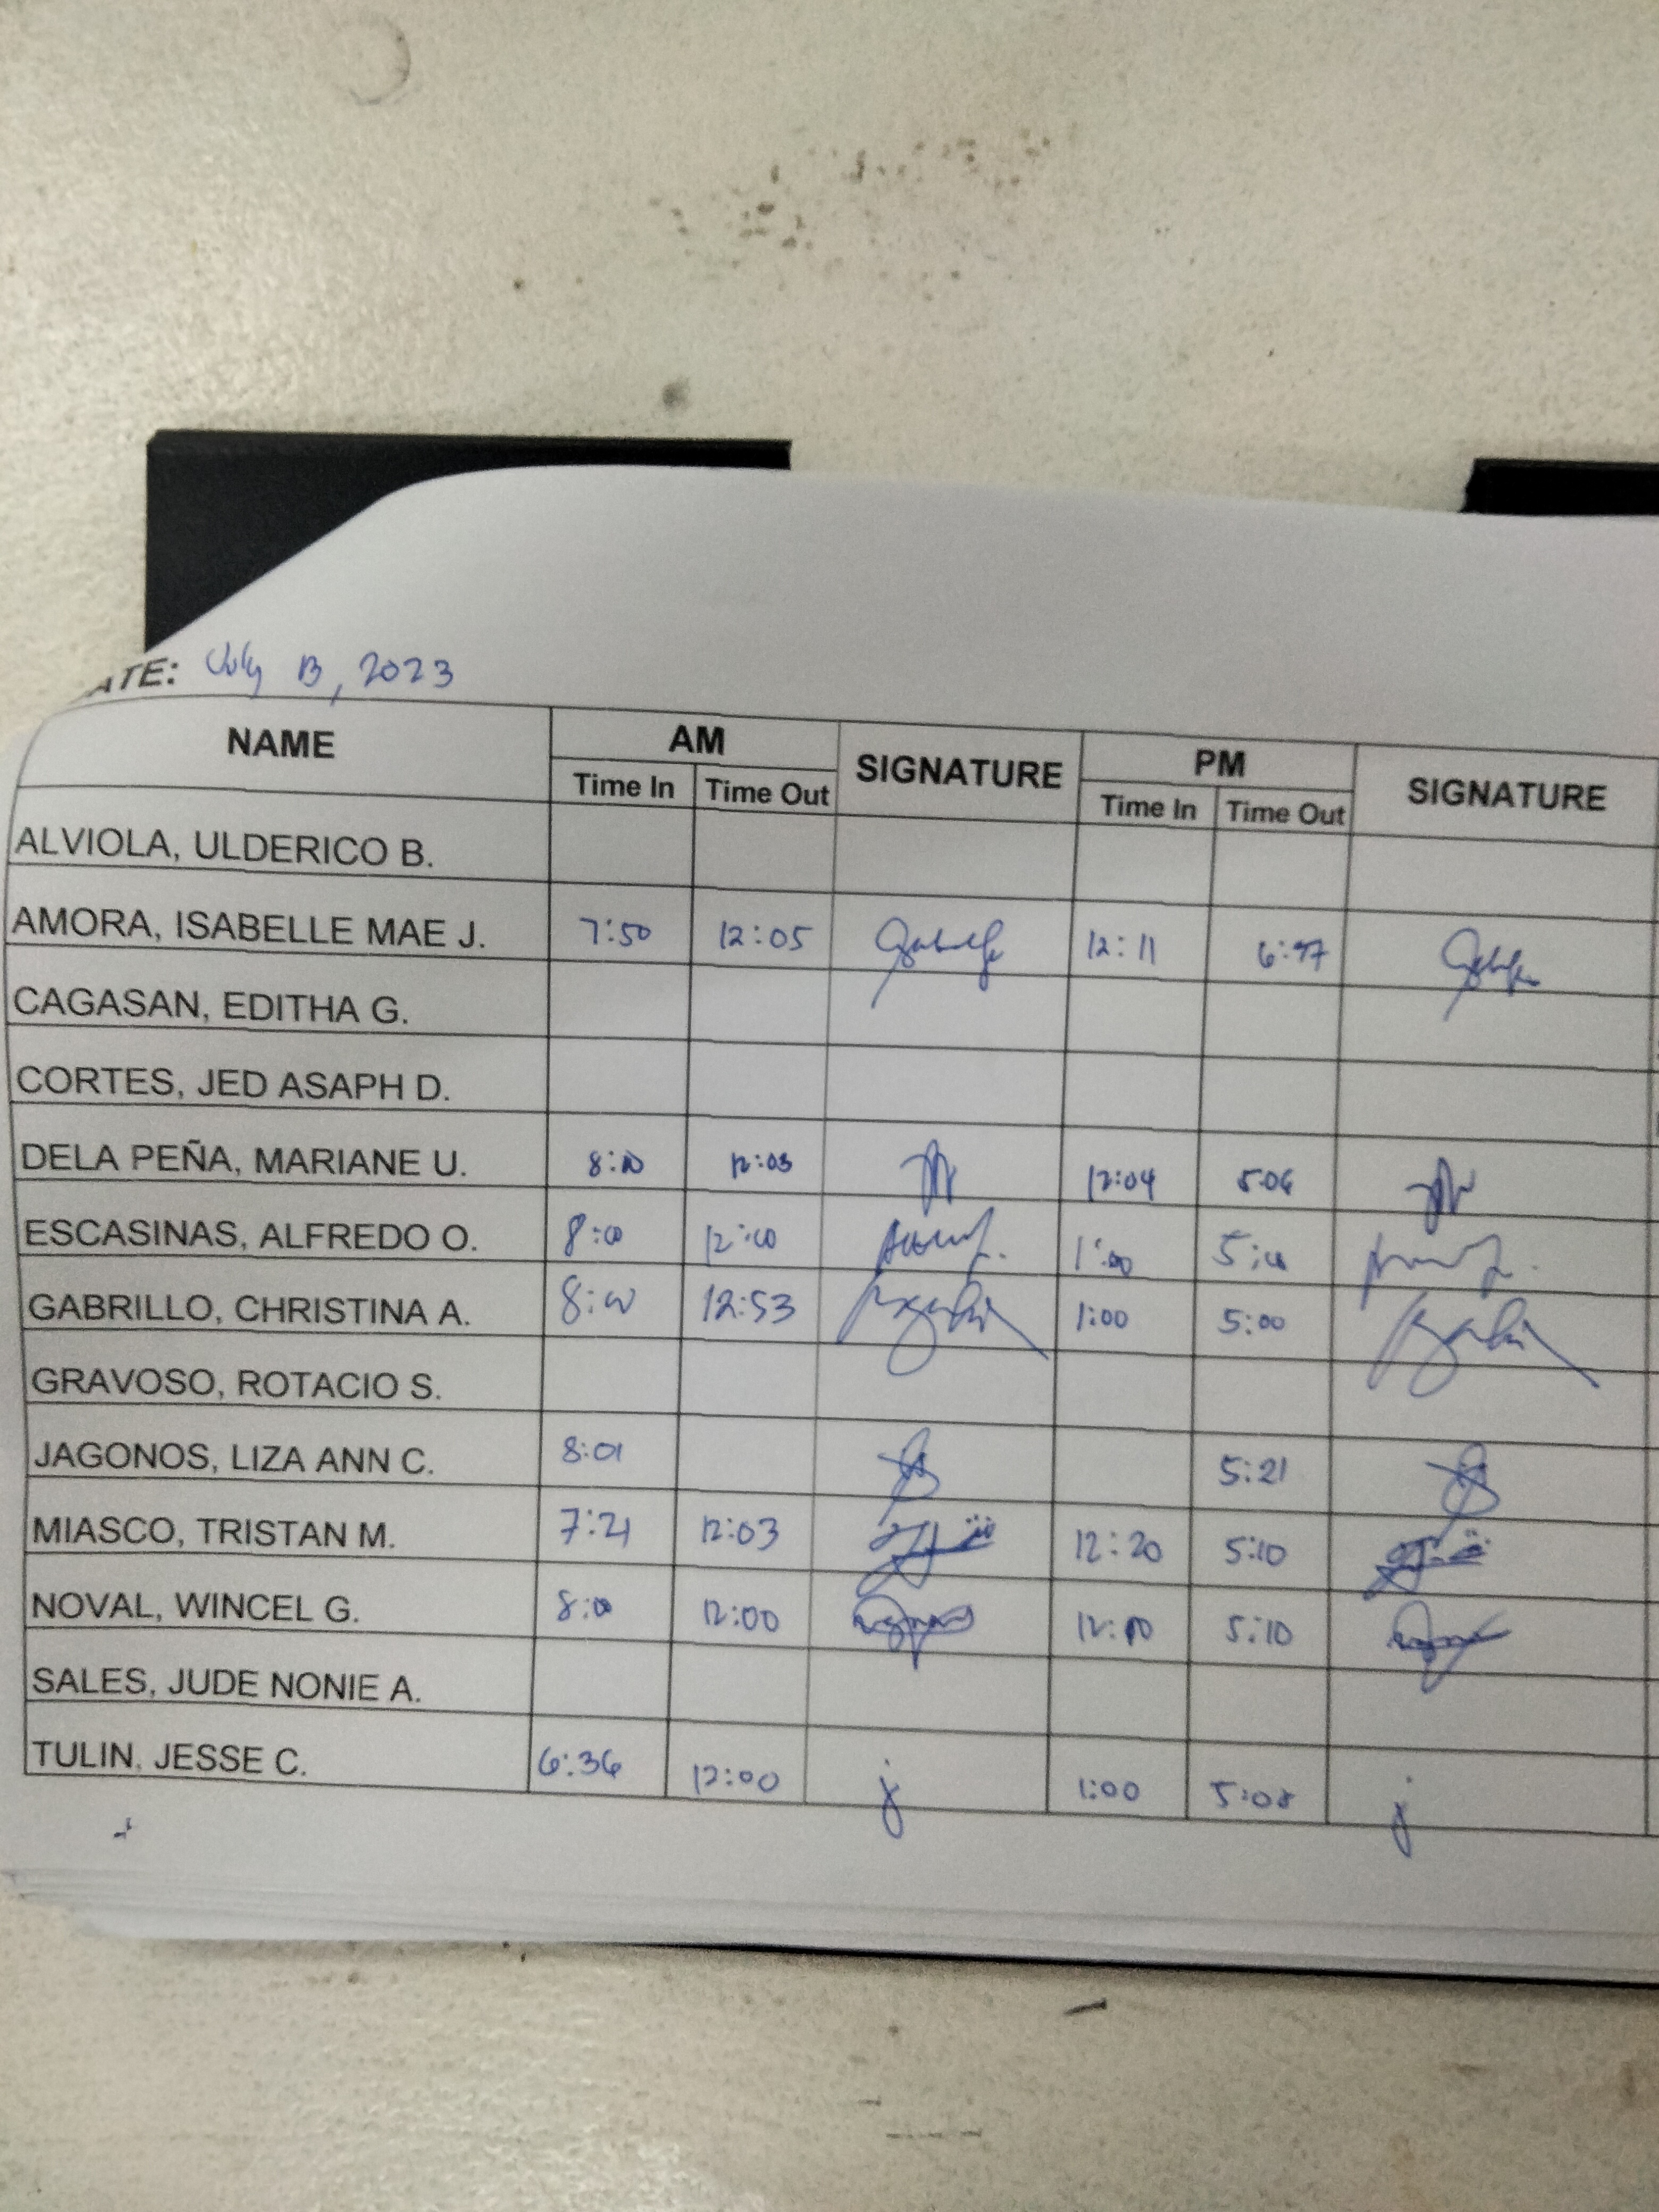 ATE: July 13, 2023
NAME AM SIGNATURE PM SIGNATURE
Time In Time Out Time In Time Out
ALVIOLA, ULDERICO B.
AMORA, ISABELLE MAE J. 7:50 12:05 12:11
CAGASAN, EDITHA G.
CORTES, JED ASAPH D.
DELA PEÑA, MARIANE U. 8:00 12:03 12:04 5:06
ESCASINAS, ALFREDO O. 8:00 12:00 1:00 5:00
GABRILLO, CHRISTINA A. 8:00 12:53 1:00 5:00
GRAVOSO, ROTACIO S.
JAGONOS, LIZA ANN C. 8:01 5:21
MIASCO, TRISTAN M. 7:21 12:03 12:20 5:10
NOVAL, WINCEL G. 8:00 12:00 5:10
SALES, JUDE NONIE A.
TULIN, JESSE C. 6:36 12:00 j 1:00 5:08 j